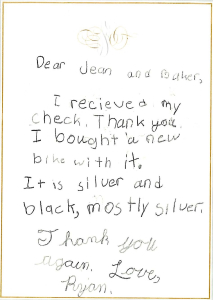 Dear Jean and Buker,
I recieved my
check. Thank you.
I bought a new
bike with it.
It is silver and
black, mostly silver.
Thank you
again. Love,
Ryan.